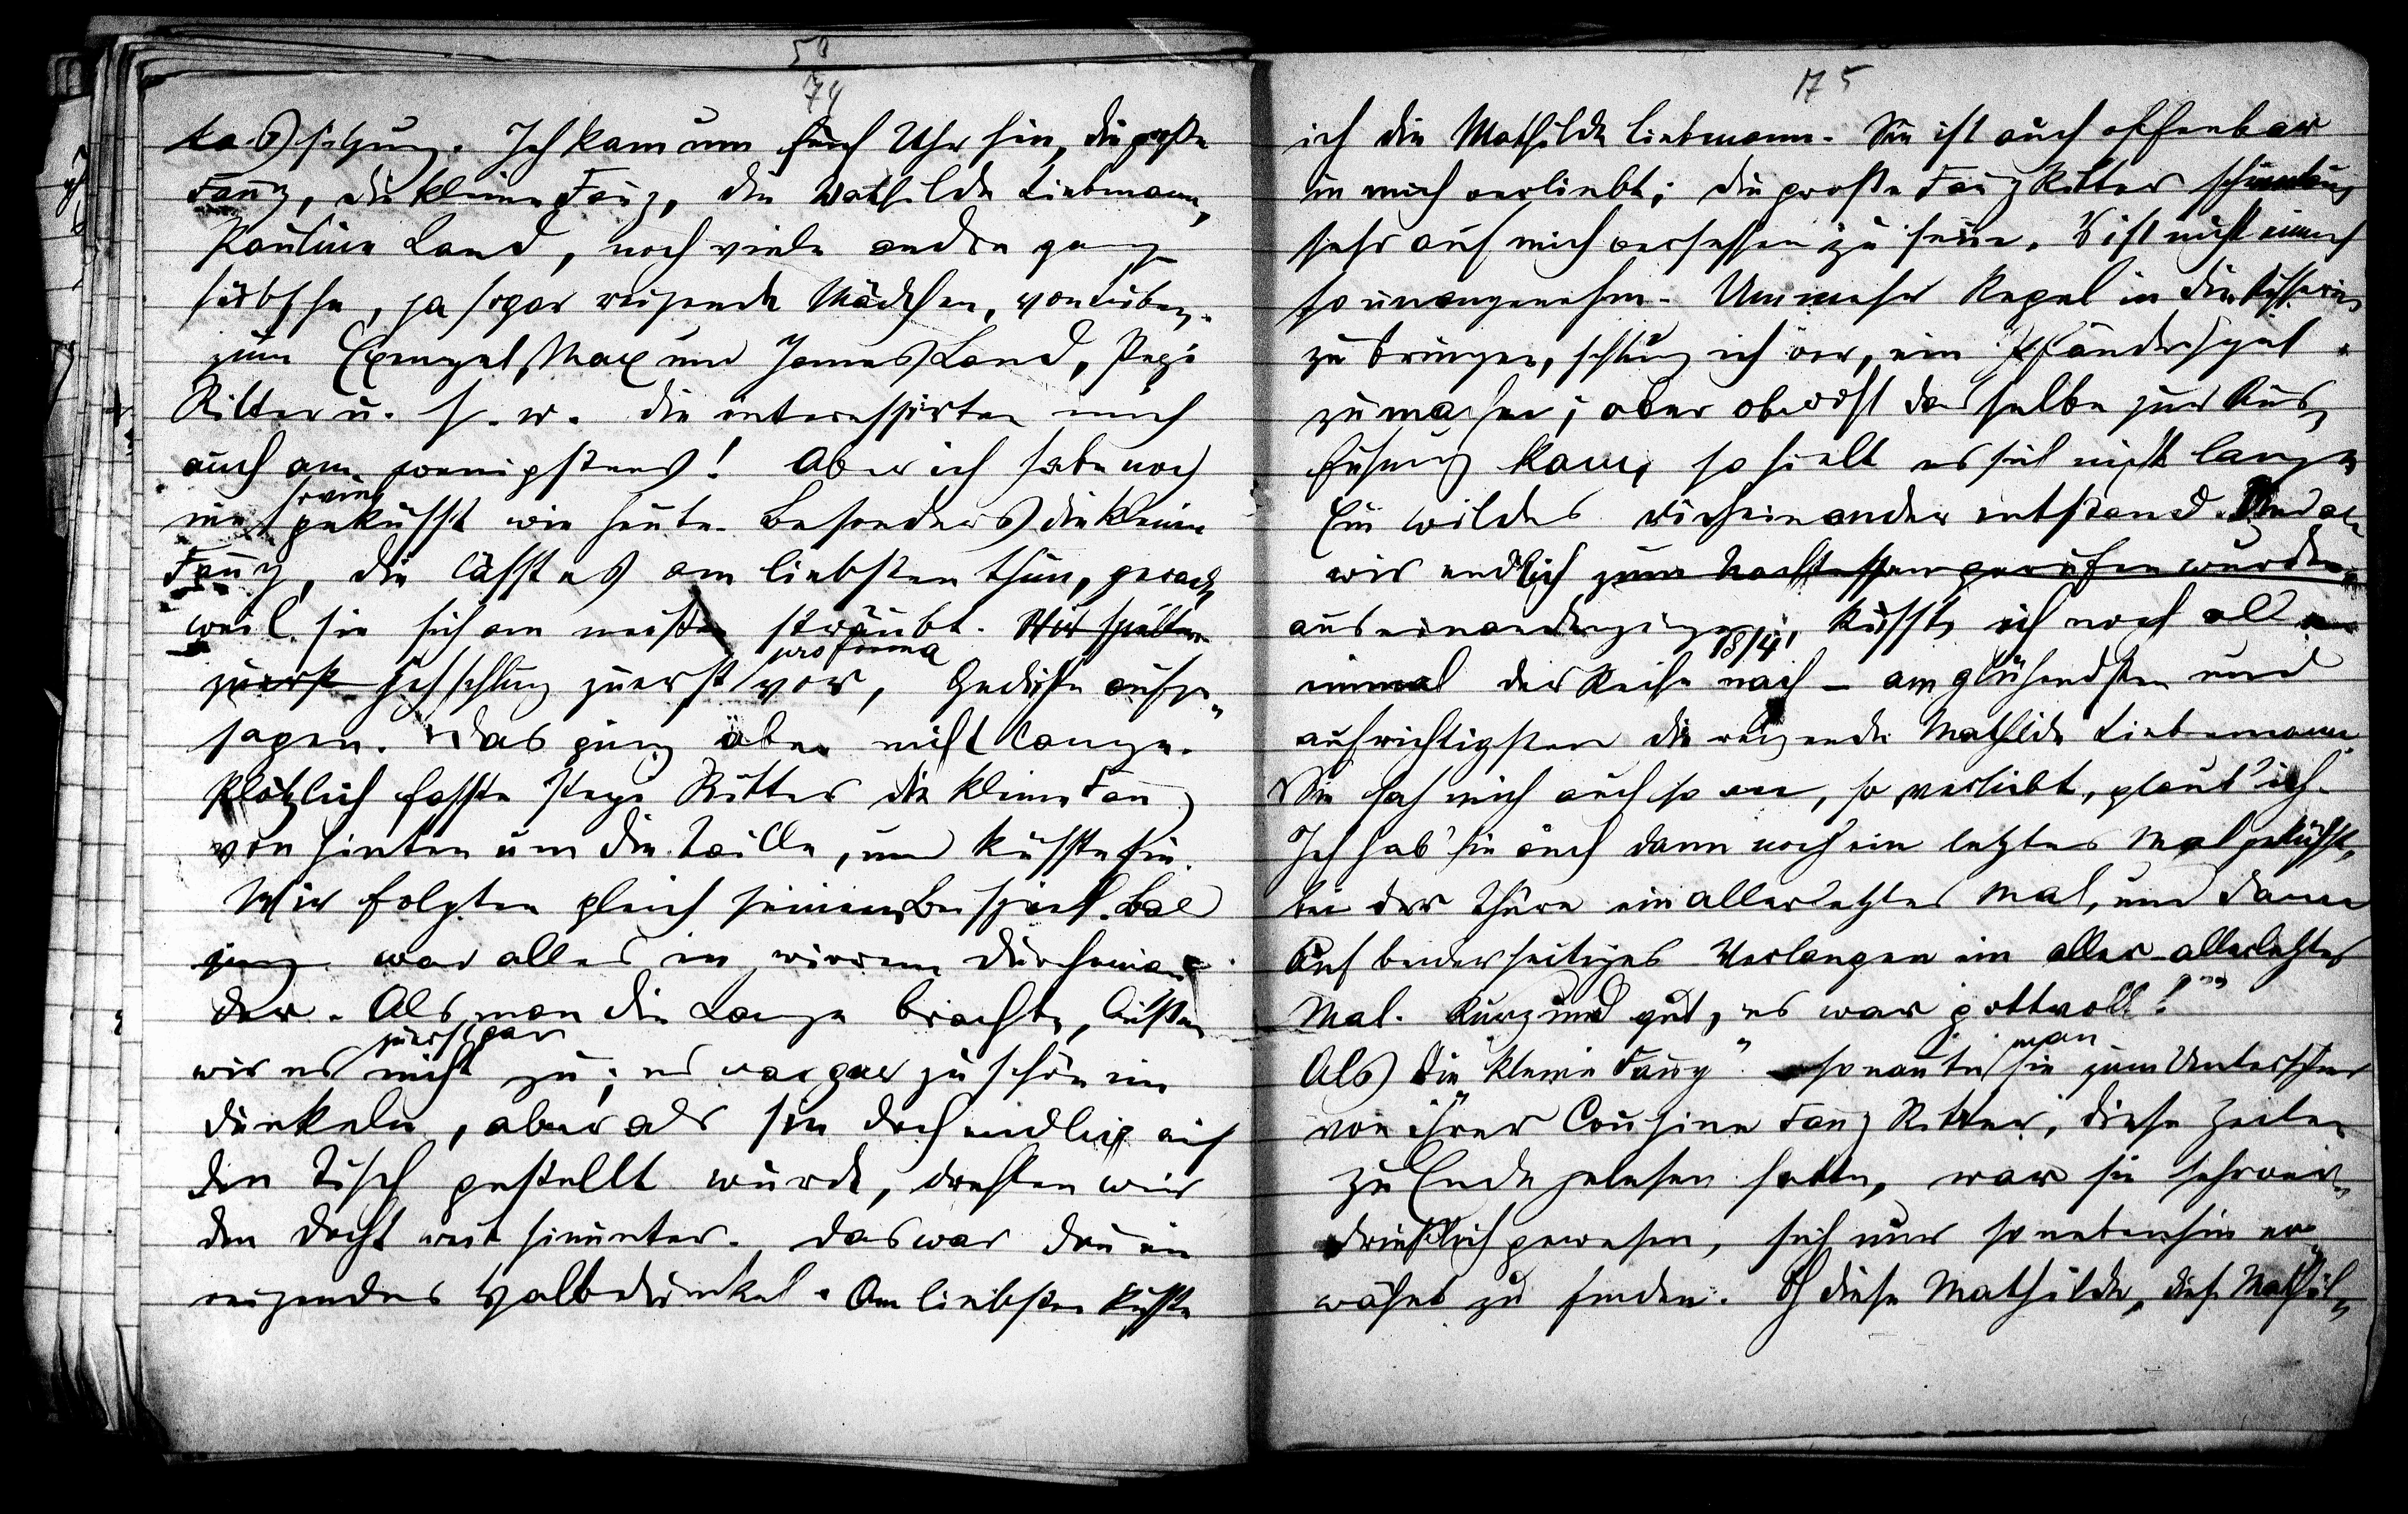 58
74
tassitzung. Ich kam um fünf Uhr hin, die große
Fanny, die kleine Fanny, die Mathilde Liebmann,
Pauline Land, noch viele andre ganz
hübsche, ja sogar reizende Mädchen, von Buben
zum Max und James Land, Pepi
Ritter u. s. w. die interessirten mich
auch am wenigsten! Aber ich habe noch
nie soviel geküsst wie heute. Besonders die kleine
Fanny, die lässt es am liebsten thun, gerade
weil sie sich am meisten sträubt. Wir spielten
zuerst Ich schlug zuerst pro forma vor, Gedichte aufzu„
sagen. Das ging aber nicht lange.
Plötzlich fasste Pepi Ritter die kleine Fanny
von hinten um die Taille, und küsste sie.
Wir folgten gleich seinem Beispiel. Bald
ging war alles in wirrem Durcheinan„
der. Als man die Lampe brachte, ließen
wir es zuerst gar nicht zu; es war gar zu schön im
Dunkeln, aber als sie doch endlich auf
den Tisch gestellt wurde, drehten wir
den Docht weit hinunter. Das war dann ein
reizendes Halbdunkel. Am liebsten küsste
175
ich die Mathilde Liebmann. Sie ist auch offenbar
in mich verliebt; die große Fanny Ritter scheint auch
sehr auf mich versessen zu sein. S' ist nicht einmal
so unangenehm. Um mehr Regel in die Küsserei
zu bringen, schlug ich vor, ein Pfänderspiel
zu machen; aber obwohl dasselbe zur Aus„
führung kam, so hielt es sich nicht lange
Ein wildes Durcheinander entstand. Und als
wir endlich zum Nachtessen gerufen wurden
auseinandergingen, 8 3/4, küsste ich noch alle
einmal der Reihe nach – am glühendsten und
aufrichtigsten die reizende Mathilde Liebmann.
Sie sah mich auch so an, so verliebt, glaub' ich.
Ich hab' sie auch dann noch ein letztes Mal geküsst,
bei der Thüre ein allerletztes Mal, und dann
Auf beiderseitiges Verlangen ein aller-allerletztes
Mal. Kurz und gut, es war gottvoll!
Als die „kleine Fanny" so nannte man sie zum Unterschied
von ihrer Cousine Fanny Ritter, diese Zeilen
zu Ende gelesen hatte, war sie sehr ver„
drießlich gewesen, sich nur so nebenhin er„
wähnt zu finden. Oh diese Mathilde, diese Mathil„